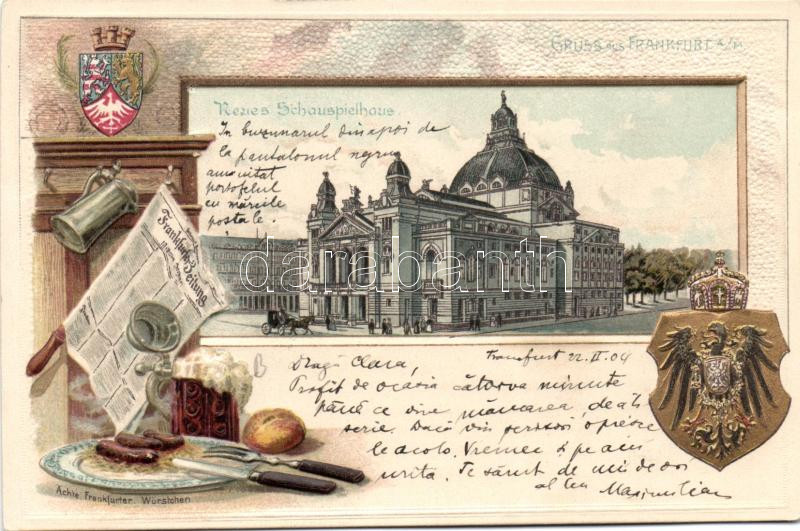 GRUSS aus FRANKFURT a/M.
Neues Schauspielhaus.
In buzunarul dinapoi de
la pantalonul negru
am uitat
portofelul
cu mărcile
poștale.
Frankfurter Zeitung
darabanth
Dragă Clara, Francfurt 22.II.04
Profit de ocazia câtorva minute
până ce vine mâncarea, de a-ți
scrie. Dacă vin persoane
le acolo. Vremea
urîtă. Te sărut de mii de ori
al tău Maximilian
Ächte Frankfurter Würstchen